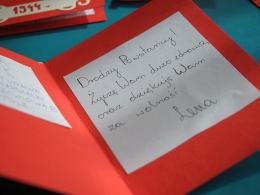 1944
Drodzy Powstańcy!
Życzę Wam dużo zdrowia
oraz dziękuję Wam
za wolność
Lena